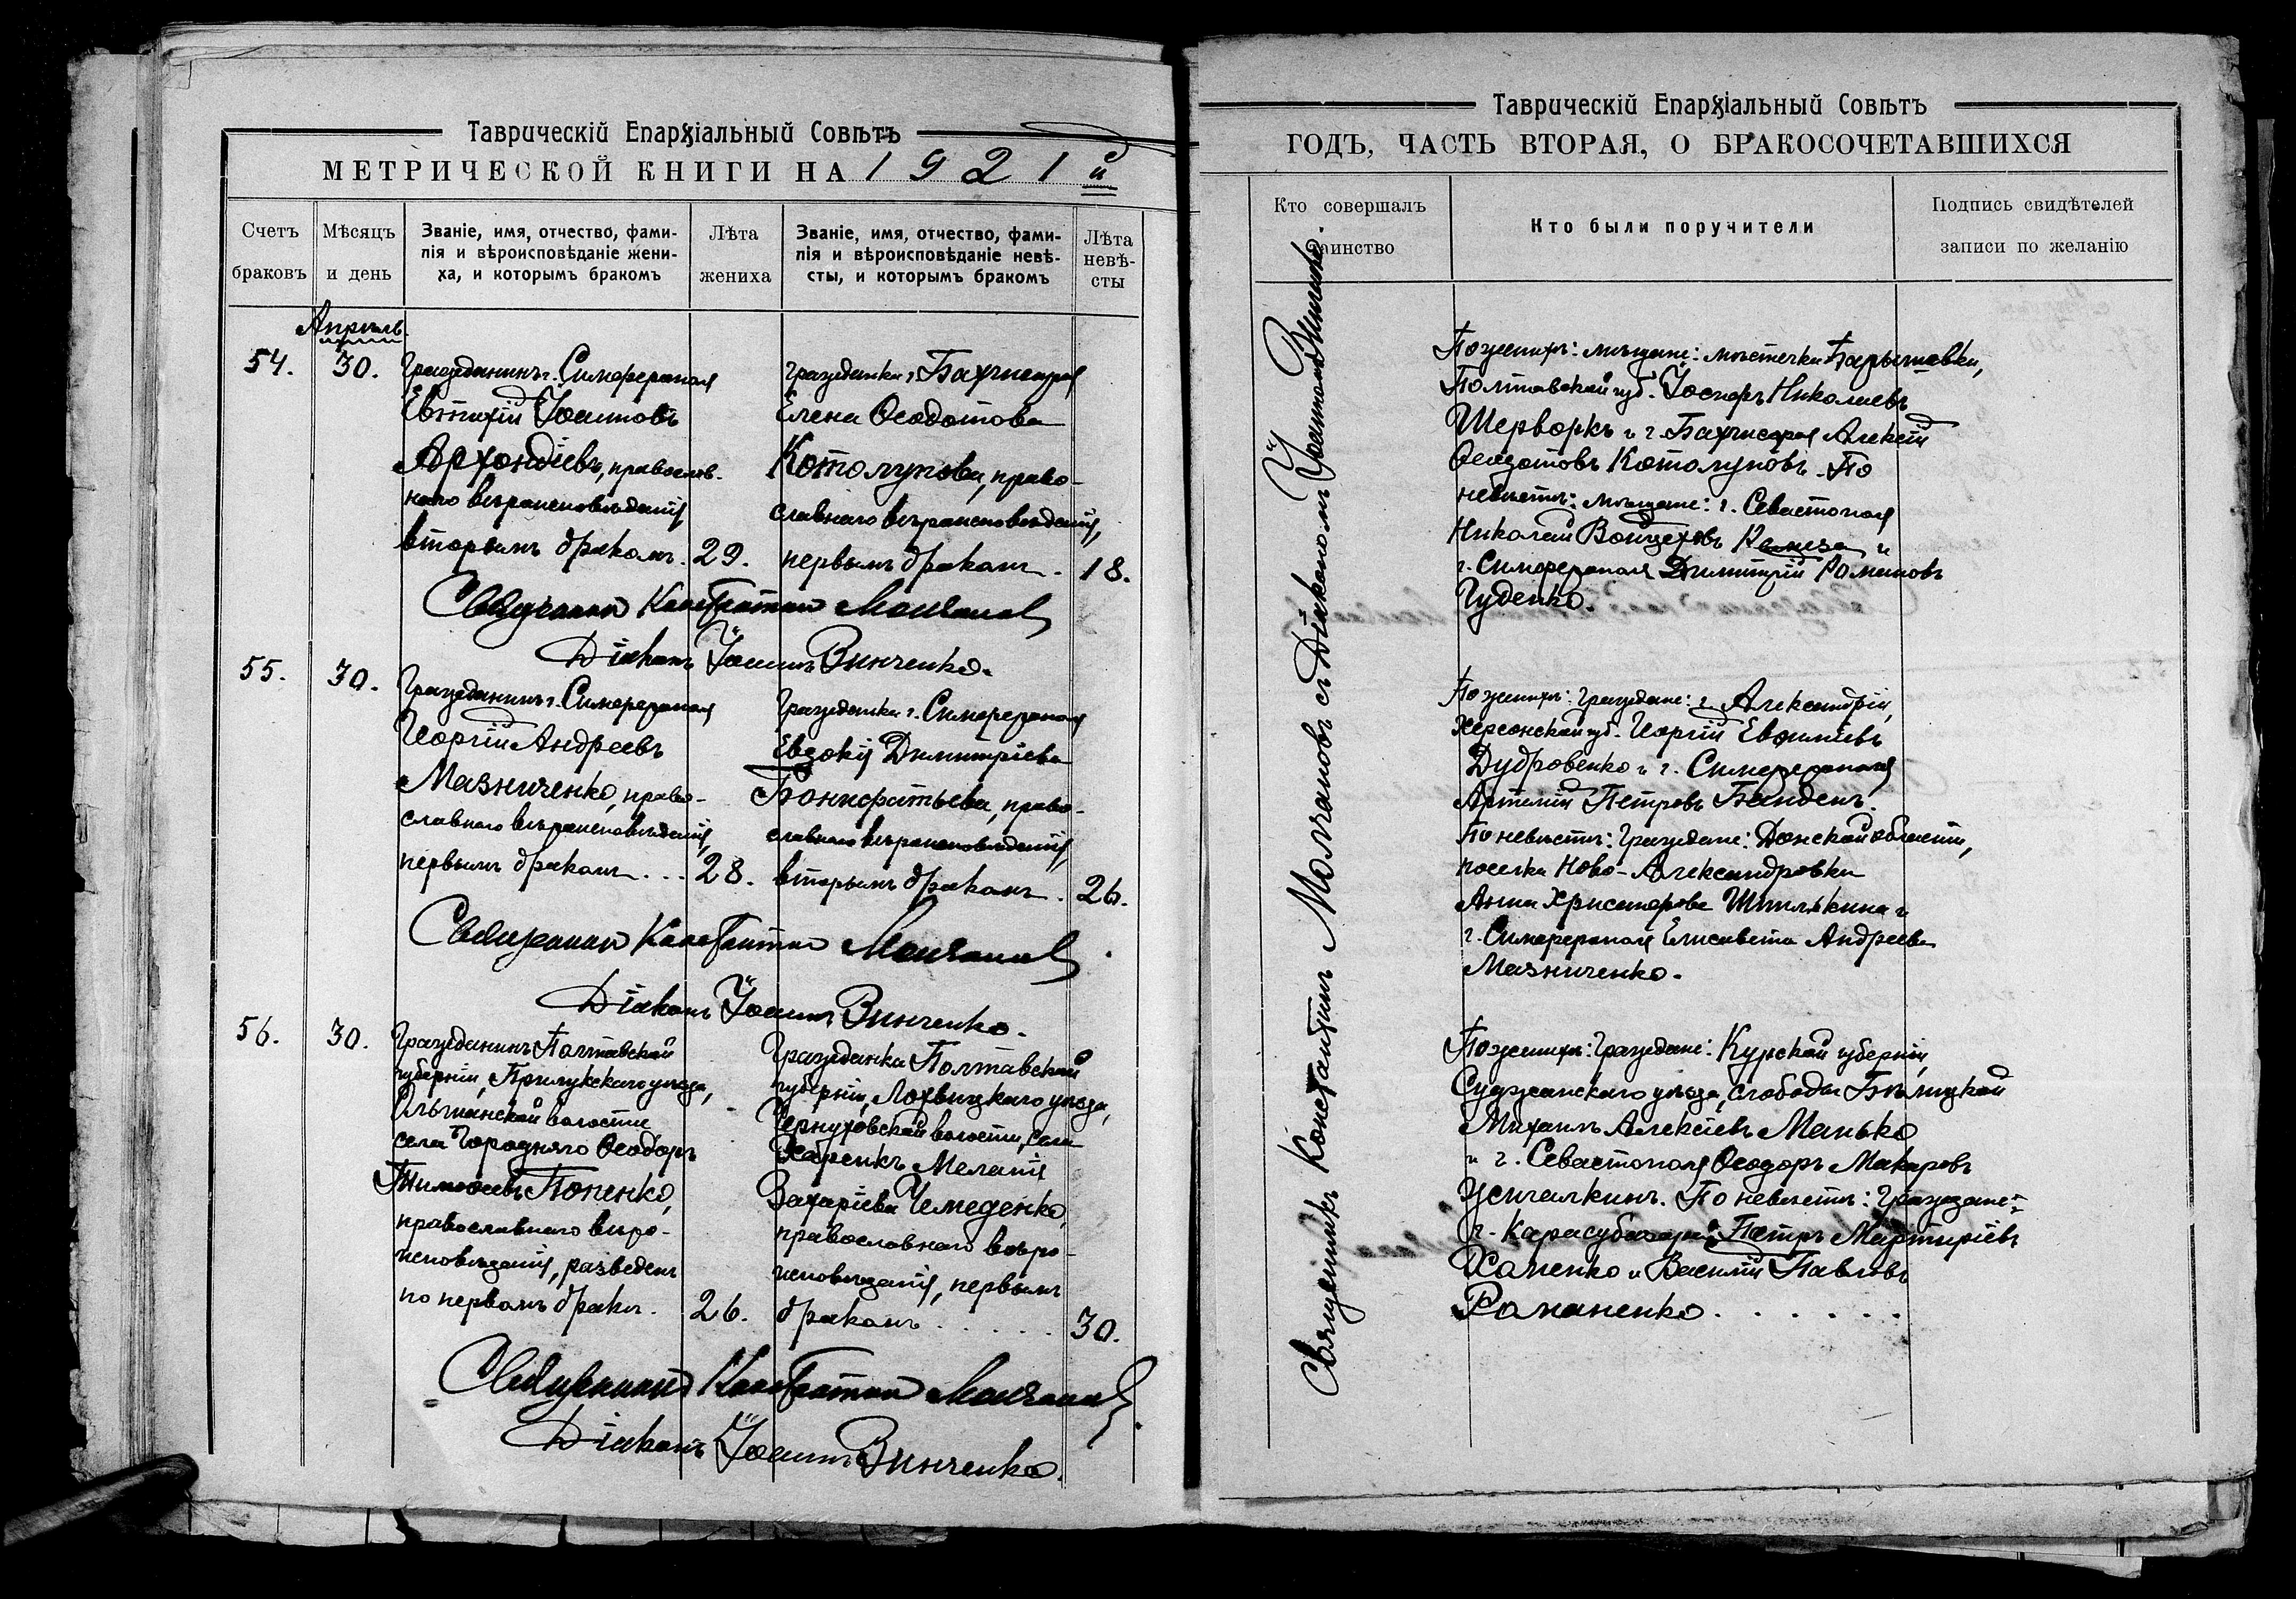 Таврическій Епархіальный Совѣтъ
МЕТРИЧЕСКОЙ КНИГИ НА 1921 й
Счетъ браковъ
Мѣсяцъ и день
Званіе, имя, отчество, фами-
лія и вѣроисповѣданіе жени-
ха, и которымъ бракомъ
Лѣта жениха
Званіе, имя, отчество, фами-
лія и вѣроисповѣданіе невѣ-
сты, и которымъ бракомъ
Лѣта
невѣ-
сты
Апрѣль
54.
30.
Гражданинъ г. Симферополя
Евтихій Іоанновъ
Архондіевъ, православ-
наго вѣроисповѣданія,
вторымъ бракомъ.
29.
Гражданка г. Бахчисарая
Елена Ѳеодотова
Котолупова, право-
славнаго вѣроисповѣданія,
первымъ бракомъ.
18.
Священникъ Константинъ Молчановъ
Діаконъ Іоаннъ Винченко.
55.
30.
Гражданинъ г. Симферополя
Георгій Андреевъ
Мазниченко, право-
славнаго вѣроисповѣданія,
первымъ бракомъ...
28.
Гражданка г. Симферополя
Евдокія Димитріева
Понкратьева, право-
славнаго вѣроисповѣданія,
вторымъ бракомъ.
26.
Священникъ Константинъ Молчановъ
Діаконъ Іоаннъ Винченко.
56.
30.
Гражданинъ Полтавской
губерніи, Прилукскаго уѣзда,
Ольшанской волости
села Городняго Ѳеодоръ
Тимоѳеевъ Попенко,
православнаго вѣро-
исповѣданія, разведенъ
по первомъ бракѣ.
26.
Гражданка Полтавской
губерніи, Лохвицкаго уѣзда,
Чернуховской волости, села
Меланія
Захаріева Чемеденко,
православнаго вѣро-
исповѣданія, первымъ
бракомъ.....
30.
Священникъ Константинъ Молчановъ
Діаконъ Іоаннъ Винченко.
Таврическій Епархіальный Совѣтъ
ГОДЪ, ЧАСТЬ ВТОРАЯ, О БРАКОСОЧЕТАВШИХСЯ
Кто совершалъ
аинство
Кто были поручители
Подпись свидѣтелей
записи по желанію
Священникъ Константинъ Молчановъ съ Діакономъ Іоанномъ Винченко.
По женихѣ: мѣщане: мѣстечка Барышевки,
Полтавской губ. Іосифъ Николаевъ
Шерворкъ и г. Бахчисарая Алексій
Ѳеодотовъ Котолуповъ. По
невѣстѣ: мѣщане: г. Севастополя
Николай Войцеховъ и
г. Симферополя Димитрій Романовъ
Гуденко.
По женихѣ: граждане: г. Александріи,
Херсонской губ. Георгій Евѳиміевъ
Дудровенко и г. Симферополя
Артемій Петровъ
По невѣстѣ: граждане: Донской области,
поселка Ново-Александровки
Анна Христофорова Шпилькина и
г. Симферополя Елисавета Андреева
Мазниченко.
По женихѣ: граждане: Курской губерніи,
Суджанскаго уѣзда, слободы Бѣлицкой
Михаилъ Алексіевъ Манько
и г. Севастополя Ѳеодоръ Макаровъ
Усичалкинъ. По невѣстѣ: граждане:
г. Карасубазара Петръ Мартиріевъ
Хоменко и Василій Павловъ
Романенко.......